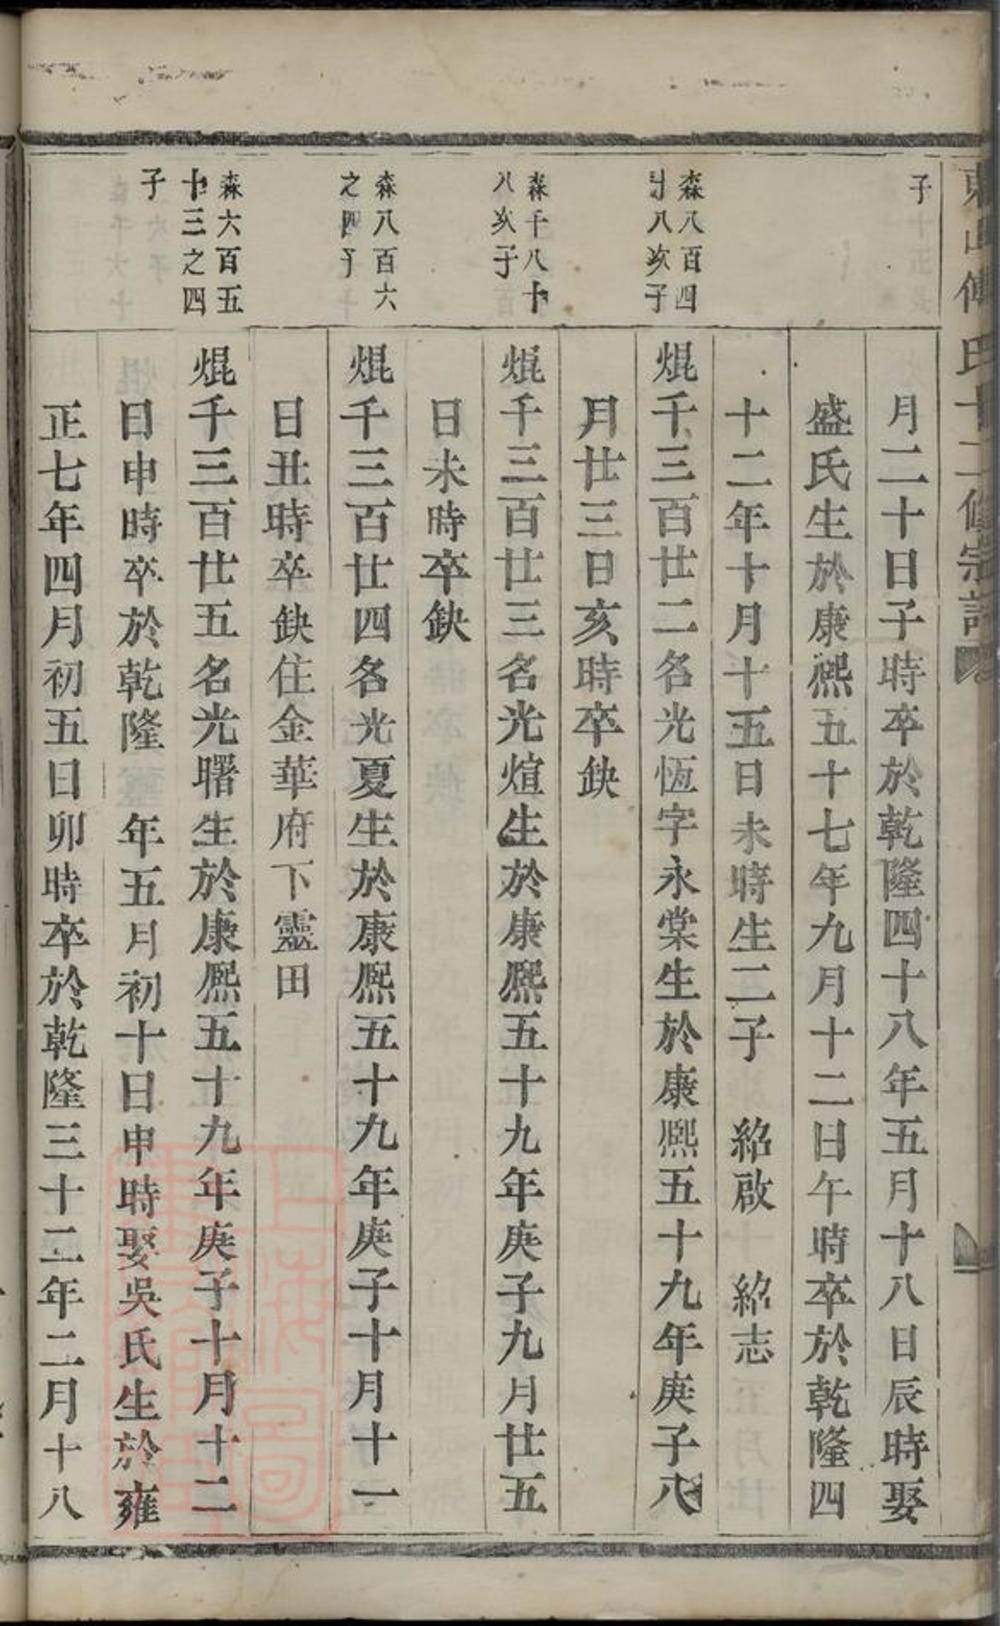 東山傅氏十二修宗譜
子
月二十日子時卒於乾隆四十八年五月十八日辰時娶
盛氏生於康熙五十七年九月十二日午時卒於乾隆四
十二年十月十五日未時生二子 紹啟 紹志
森八百四
十八次子
焜千三百廿二名光恆字永棠生於康熙五十九年庚子八
月廿三日亥時卒缺
森千八十
八次子
焜千三百廿三名光煊生於康熙五十九年庚子九月廿五
日未時卒缺
森八百六
之四子
焜千三百廿四名光夏生於康熙五十九年庚子十月十一
日丑時卒缺住金華府下靈田
森六百五
十三之四
子
焜千三百廿五名光曙生於康熙五十九年庚子十月十二
日申時卒於乾隆 年五月初十日申時娶吳氏生於雍
正七年四月初五日卯時卒於乾隆三十二年二月十八